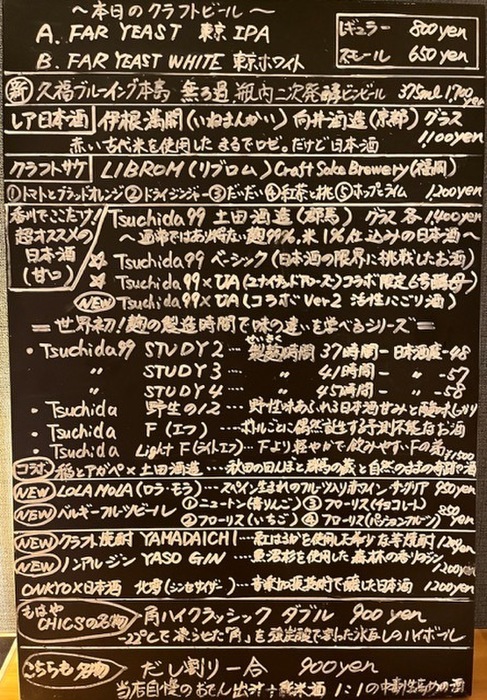 ～本日のクラフトビール～
A. FAR YEAST 東京 IPA
B. FAR YEAST WHITE 東京ホワイト
レギュラー 800yen
スモール 650yen
新 久福ブルーイング本島 無ろ過 瓶内二次発酵ビンビール 375ml 1,700yen
レア日本酒 伊根満開(いねまんかい) 向井酒造(京都) グラス 1,100yen
赤い古代米を使用したまるでロゼ。だけど日本酒
クラフトサケ LIBROM(リブロム) Craft Sake Brewery(福岡)
①トマトとブラッドオレンジ ②ドライジンジャー ③だいだい ④紅茶と桃 ⑤ホップとライム 1,200yen
香川でここだけ!超オススメの日本酒(甘口)
Tsuchida99 土田酒造(群馬) グラス 各1,400yen
～通常ではあり得ない麹99%、米1%仕込みの日本酒～
☆ Tsuchida99 ベーシック(日本酒の限界に挑戦したお酒)
☆ Tsuchida99×UA(ユナイテッドアローズ)コラボ限定6号酵母
NEW Tsuchida99×UA(コラボ Ver.2 活性にごり酒)
＝世界初!麹の製造時間で味の違いを学べるシリーズ＝
・Tsuchida99 STUDY2… 製麹時間 37時間ー日本酒度-48
せいきく
〃 STUDY3… 〃 41時間ー 〃 -57
〃 STUDY4… 〃 45時間ー 〃 -58
・Tsuchida 野生の12 … 野性味あふれる日本酒 甘みと酸味しっかり
・Tsuchida F(エフ) … ボトルごとに偶然誕生する予測不能なお酒
・Tsuchida Light F(ライトエフ)… Fより軽やかで飲みやすいFの弟 1,500
コラボ 稲とアガベ×土田酒造 … 秋田の田んぼと群馬の蔵と自然のままの時間の酒
NEW LOLA MOLA(ロラ・モラ) … スペイン生まれのフルーツ入り赤ワイン サングリア 950yen
NEW ベルギーフルーツビール ①ニュートン(青りんご) ③フローリス(チョコレート) 850yen
②フローリス(いちご) ④フローリス(パッションフルーツ)
NEW クラフト焼酎 YAMADAICHI … 紅はるかを使用した希少な芋焼酎
NEW ノンアルジン YASO GIN … 魚沼杉を使用した森林の香りのジン 1,200yen
ONKYO×日本酒 北雪(シンセサイザー) … 音楽加振技術で醸した日本酒 1200yen
もはやCHICSの名物 角ハイクラッシック ダブル 900yen
-22℃で凍らせた「角」を強炭酸で割った氷なしのハイボール
こちらも名物 だし割り一合 900yen
当店自慢のおでん出汁+純米酒 1:1の